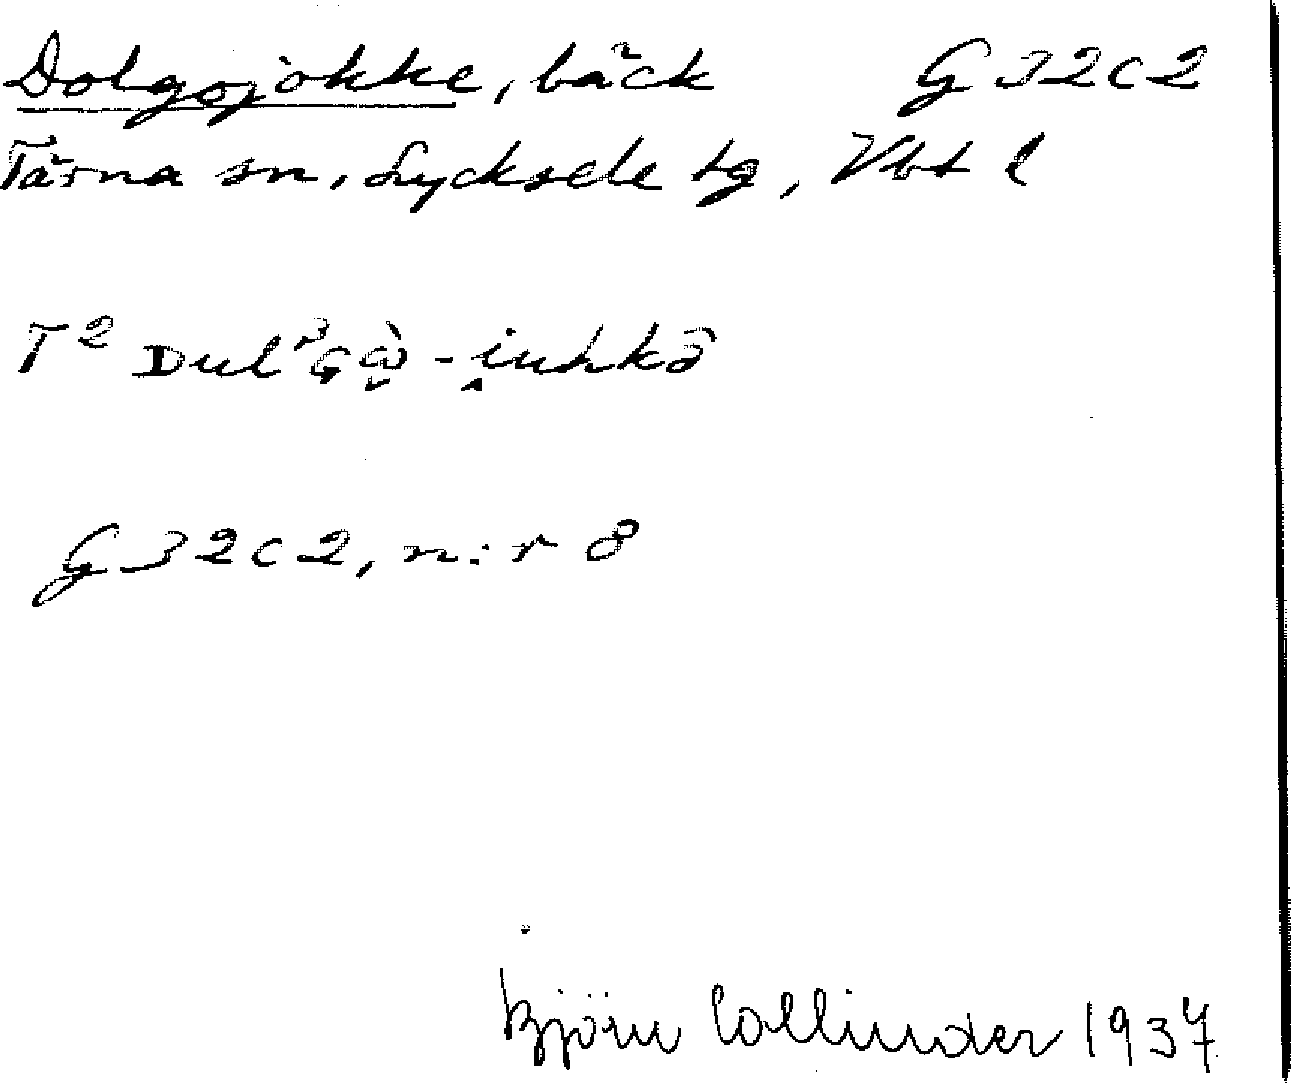 Dolgsjokke, bäck G 32 c 2
Tärna sn, Lycksele tg, Vbt l
T²
G 32 c 2, n:r 8
Björn Collinder 1937